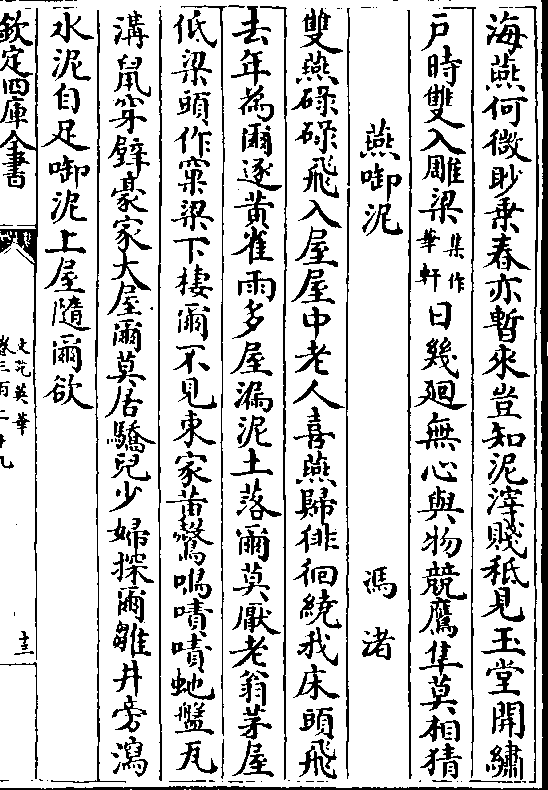 海燕何微眇乗春亦暫来豈知泥滓賤秪見玉堂開繡
戸時雙入雕梁集作華軒日幾廻無心與物競鷹隼莫相猜
燕啣泥 馮渚
雙燕碌碌飛入屋屋中老人喜燕歸徘徊繞我床頭飛
去年為爾逐黄雀雨多屋漏泥土落爾莫厭老翁茅屋
低梁頭作窠梁下棲爾不見東家黃鷇鳴嘖嘖虵盤瓦
溝鼠穿壁豪家大屋爾莫居驕兒少婦探爾雛井旁瀉
水泥自足啣泥上屋隨爾欲
欽定四庫全書
文苑英華
卷三百二十九
十三